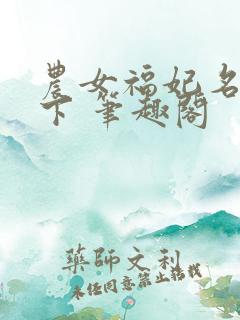 農女福妃名
下 筆趣閣
藥師文利
未任同意禁止轉載